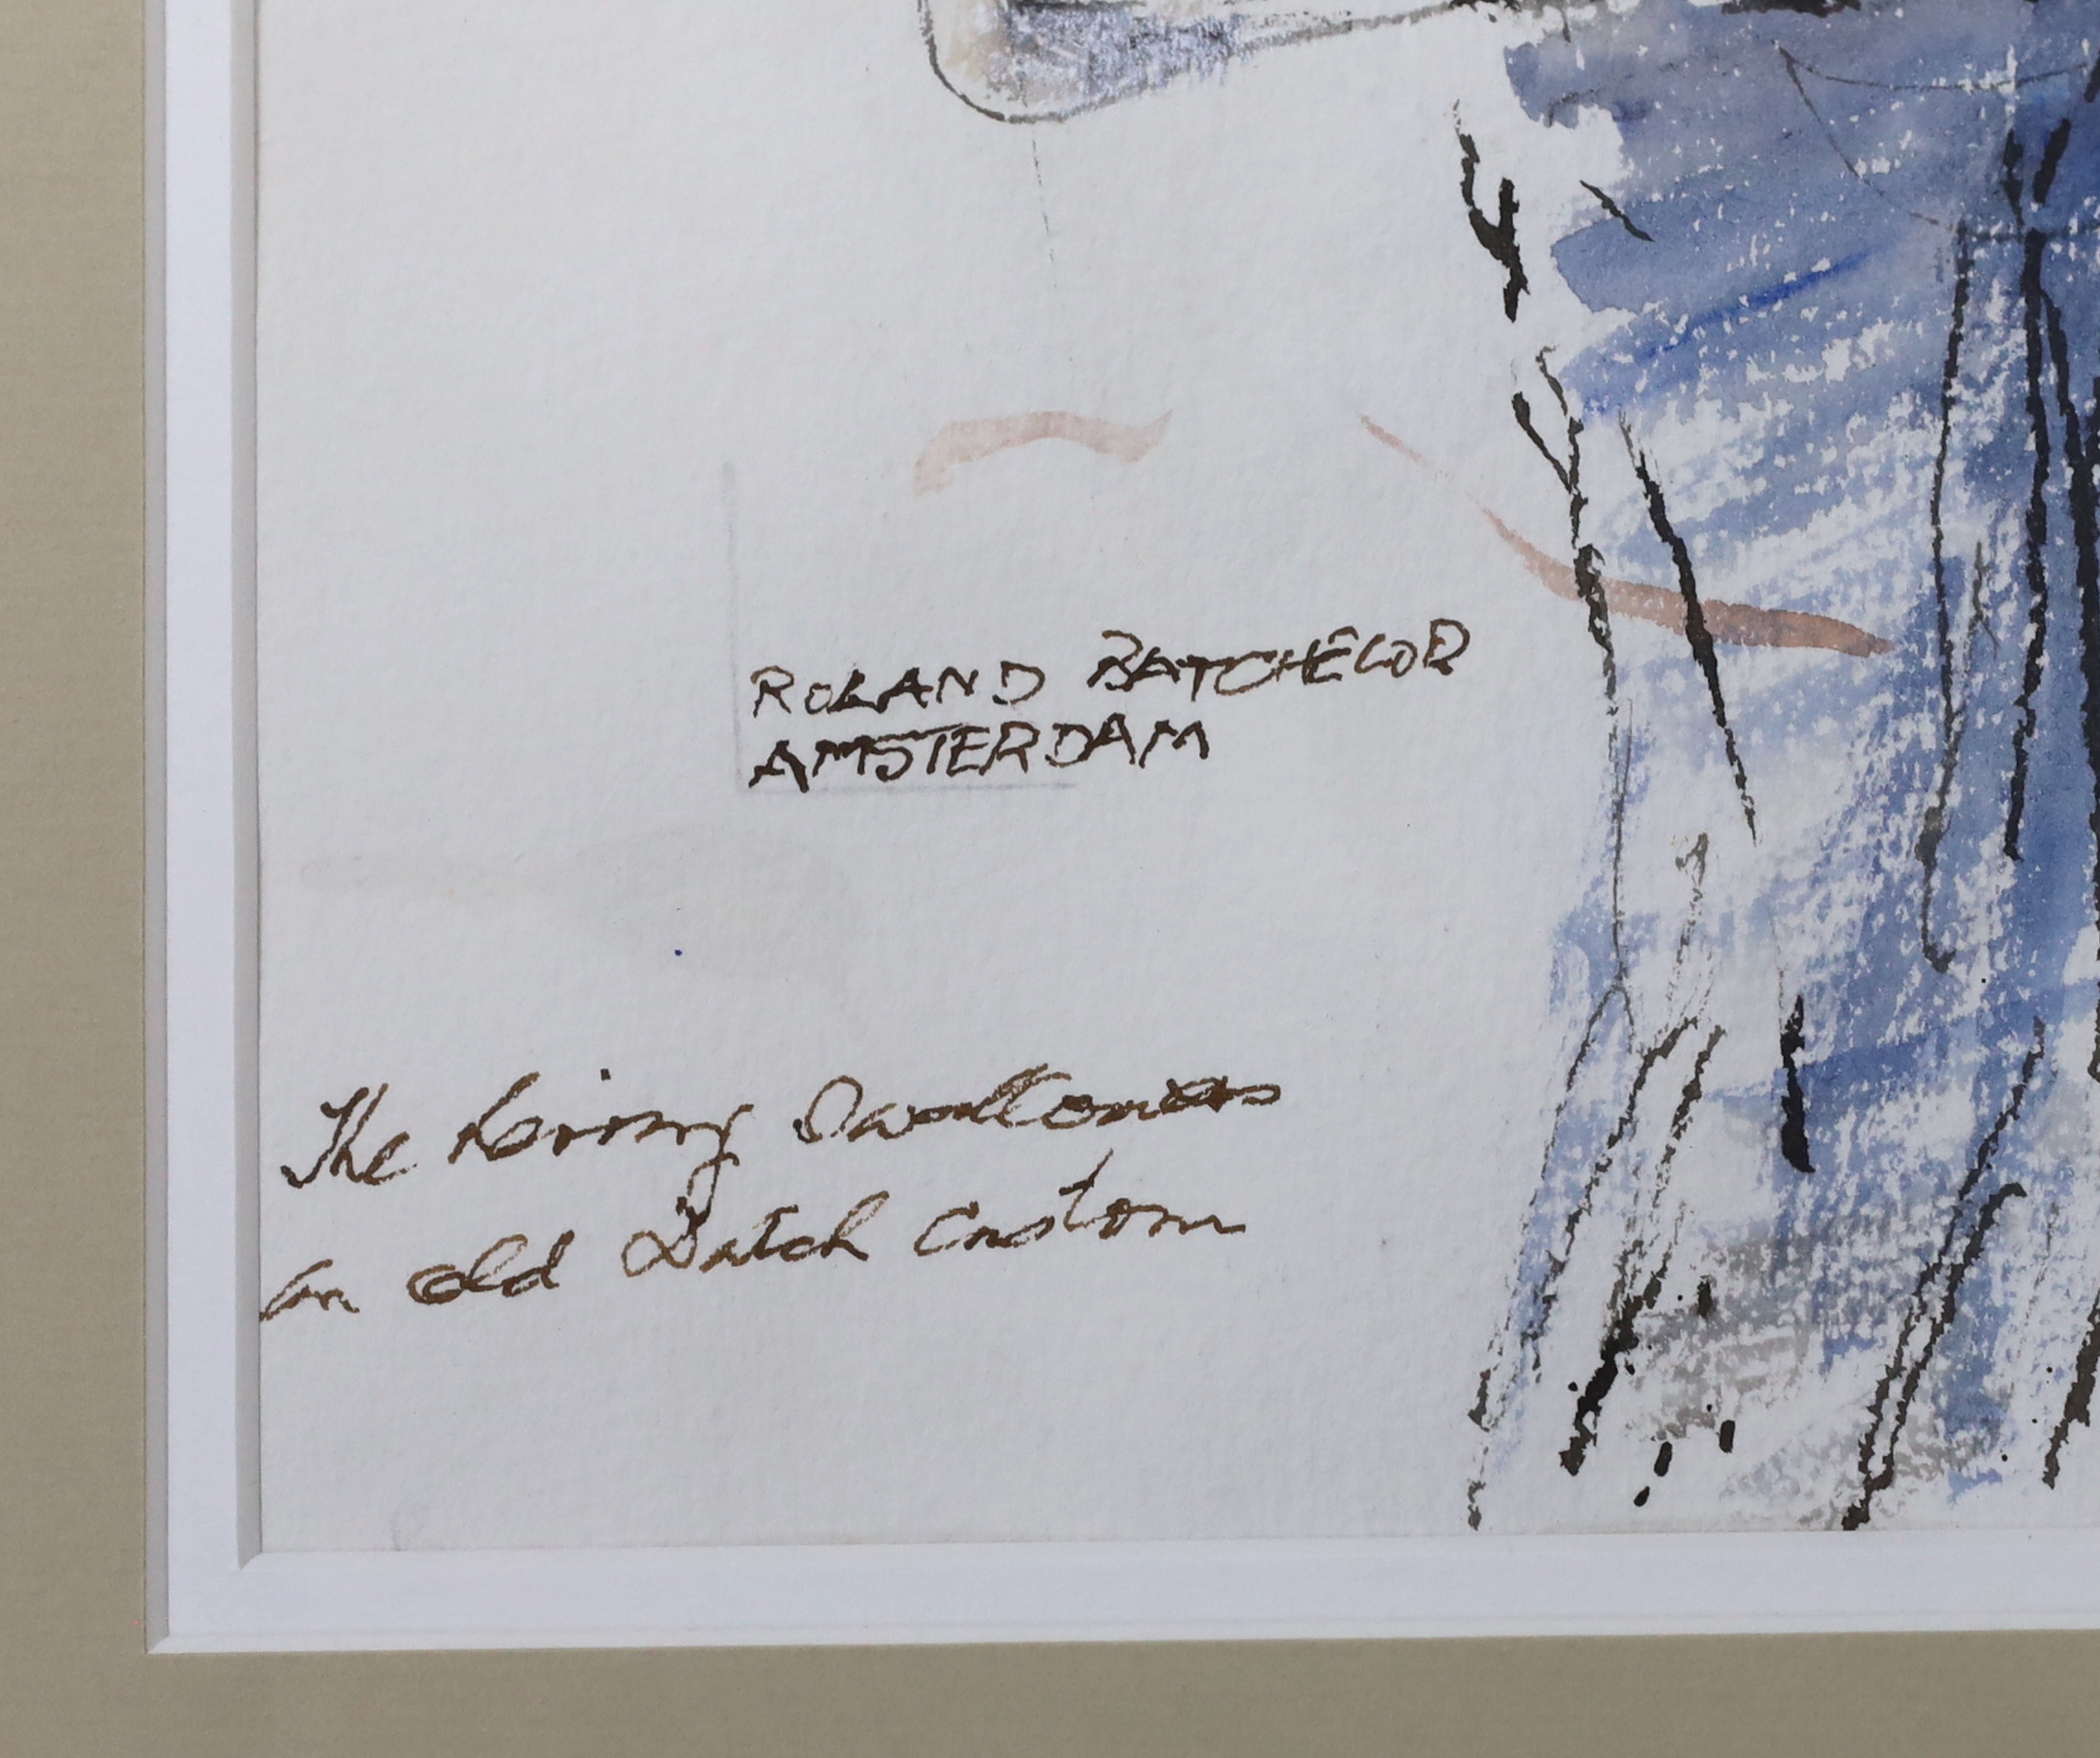 ROLAND BATCHELOR
AMSTERDAM
The Herring Swallowers
An old Dutch Custom